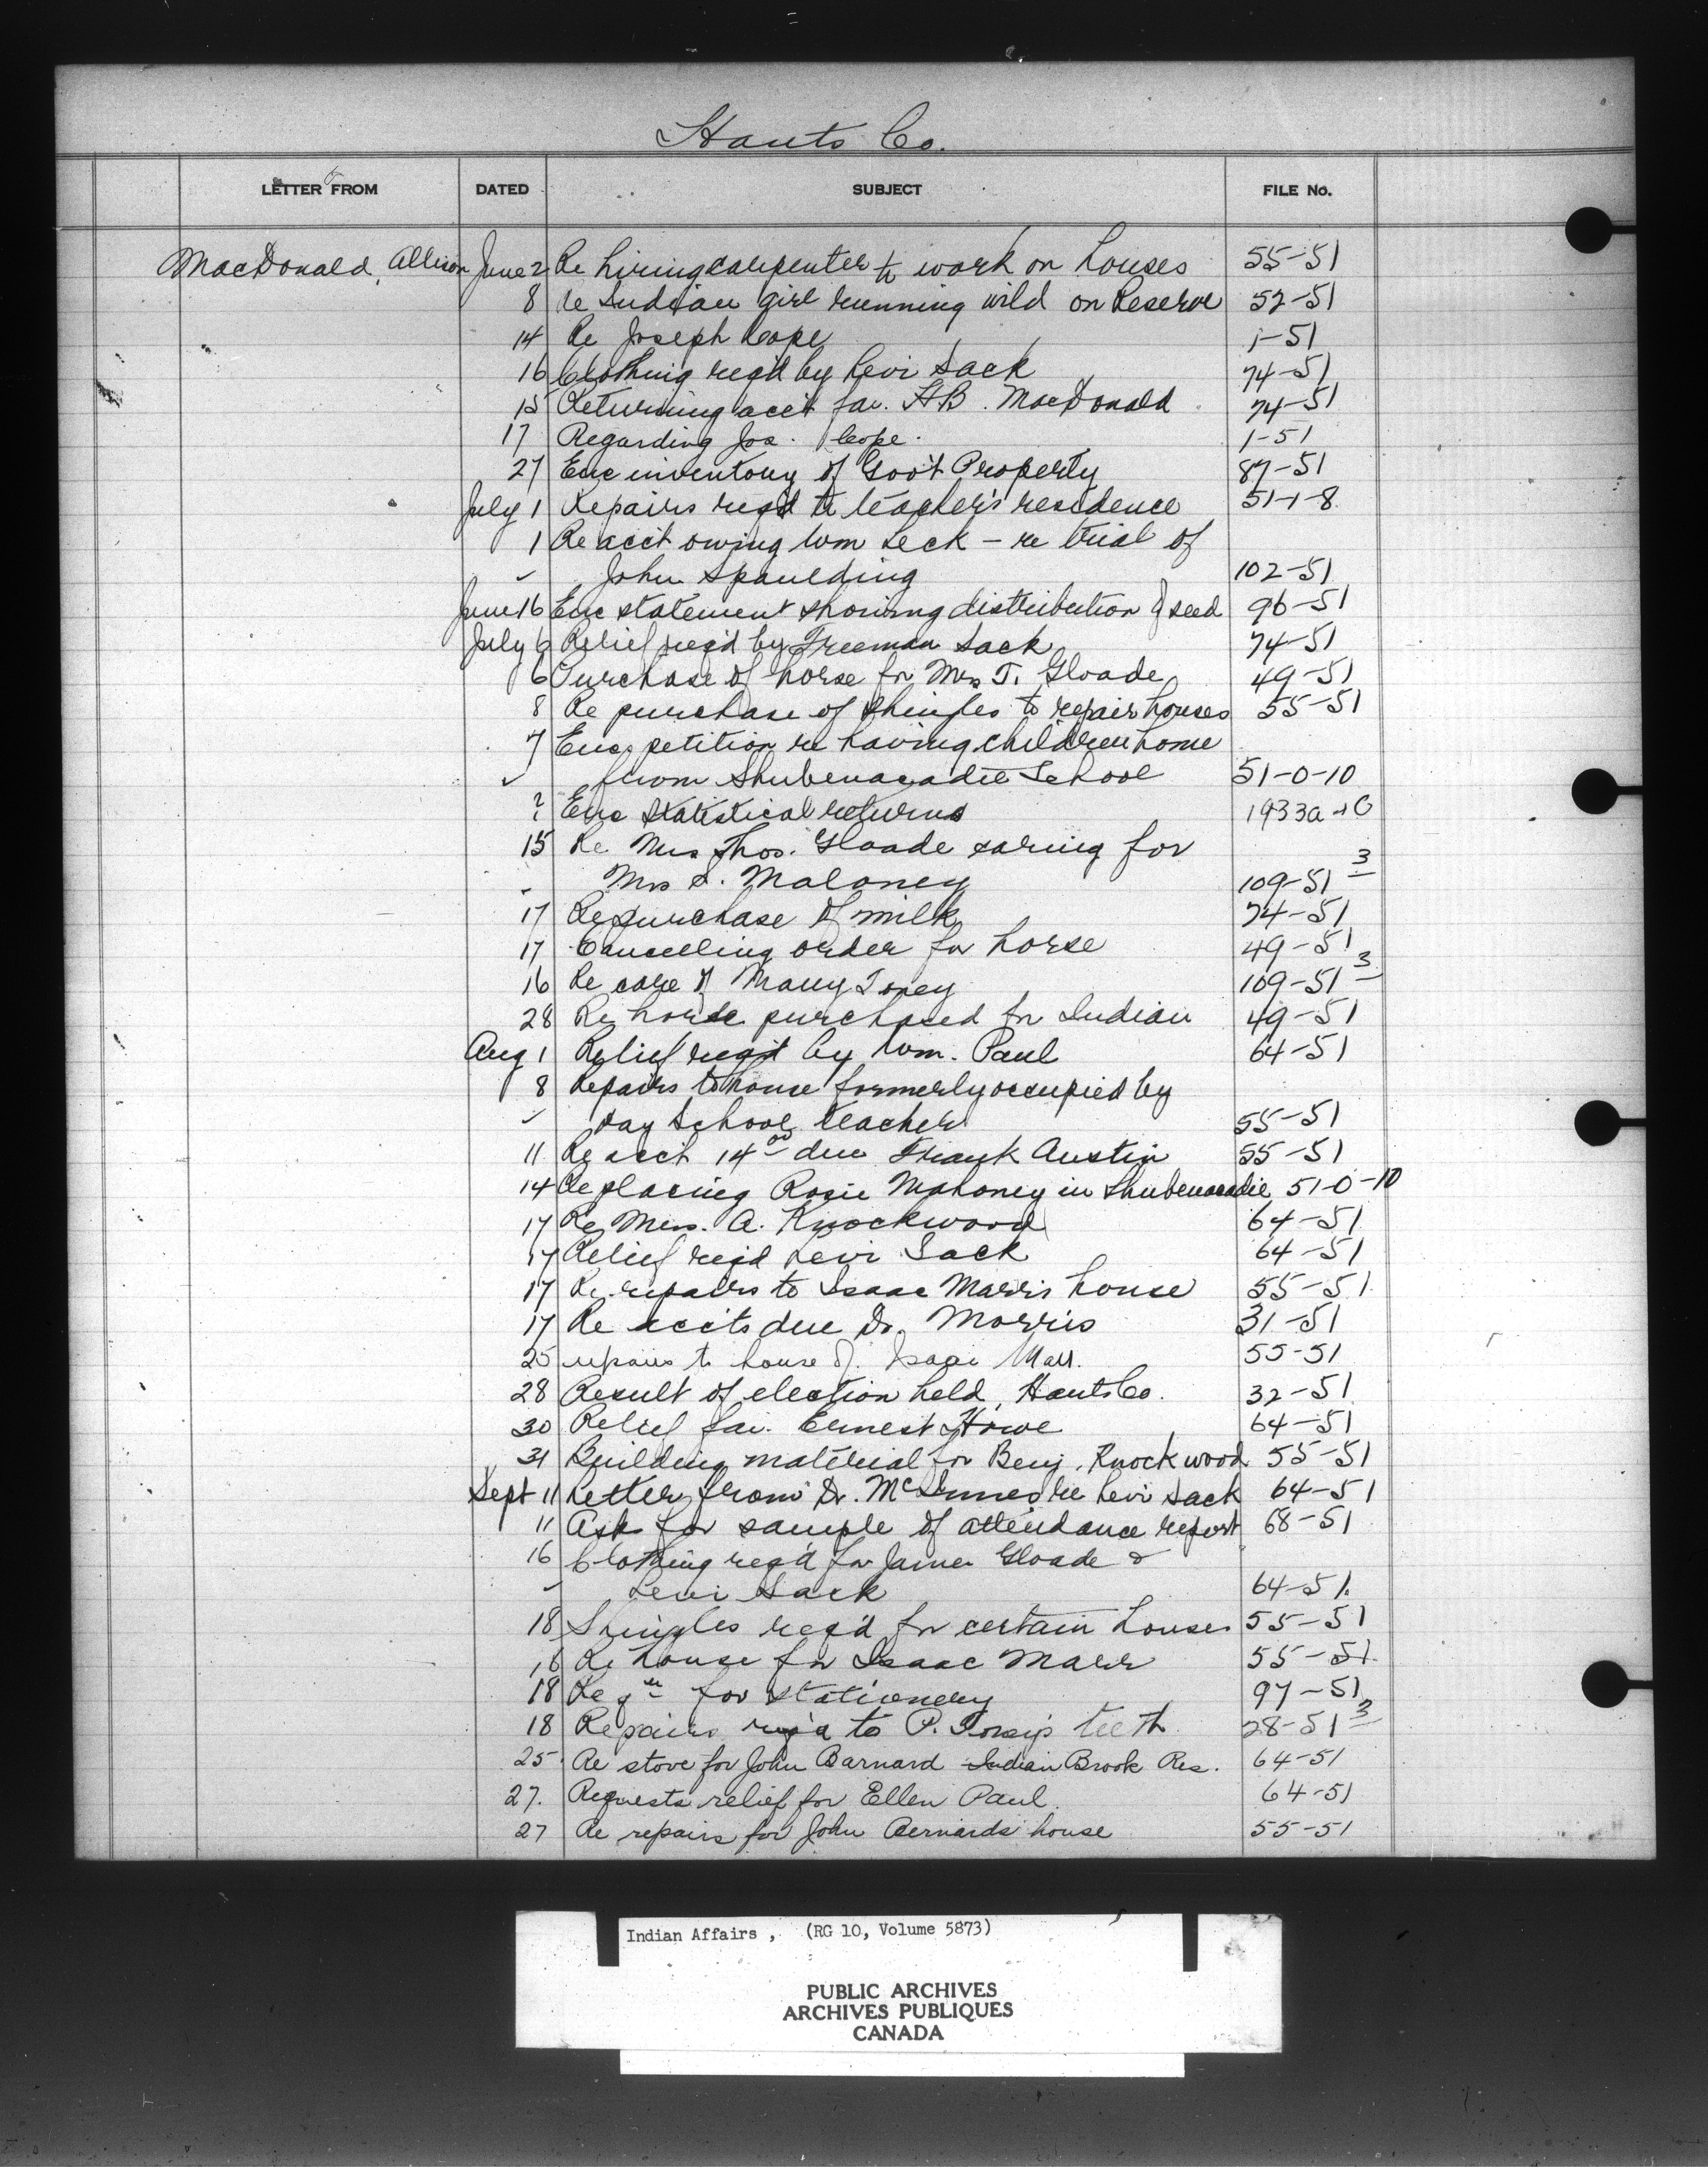 Hants Co.
LETTER FROM DATED SUBJECT FILE No.
MacDonald, Allison June 2 Re hiring carpenter to work on houses 55-51
8 Re Indian girl running wild on Reserve 52-51
14 Re Joseph Cope 1-51
16 Clothing req'd by Levi Sack 74-51
15 Returning acc't fav. H.B. MacDonald 74-51
17 Regarding Jos. Cope. 1-51
27 Enc inventory of Gov't Property 87-51
July 1 Repairs req'd to teacher's residence 51-1-8
1 Re acc't owing Wm Seck - re trial of
✓ John Spaulding 102-51
June 16 Enc statement showing distribution of seed 96-51
July 6 Relief req'd by Freeman Sack 74-51
6 Purchase of horse for Mrs T. Gloade 49-51
8 Re purchase of shingles to repair houses 55-51
7 Enc petition re having children home
✓ from Shubenacadie School 51-0-10
? Enc Statistical returns 1933a
15 Re Mrs Thos. Gloade caring for
Mrs S. Maloney 109-51 3
17 Re purchase of milk 74-51
17 Cancelling order for horse 49-51
16 Re care of Mary Toney 109-51 3
28 Re horse purchased for Indian 49-51
Aug 1 Relief req'd by Wm. Paul 64-51
8 Repairs to house formerly occupied by
✓ day School teacher 55-51
11 Re acct 14 00 due Frank Austin 55-51
14 Re placing Rosie Mahoney in Shubenacadie 51-0-10
17 Re Mrs. A. Knockwood 64-51
17 Relief req'd Levi Sack 64-51
17 Re repairs to Isaac Marrs house 55-51
17 Re accts due Dr. Morris 31-51
25 repairs to house of Isaac Marr. 55-51
28 Result of election held, Hants Co. 32-51
30 Relief fav. Ernest Howe 64-51
31 Building material for Benj. Knockwood 55-51
Sept 11 Letter from Dr. McInnes re Levi Sack 64-51
11 Asks for sample of attendance report 68-51
16 Clothing req'd for James Gloade &
✓ Levi Sack 64-51.
18 Shingles req'd for certain houses 55-51
16 Re house for Isaac Marr 55-51
18 Reqn for stationery 97-51
18 Repairs req'd to P. Toney's teeth 28-51 3
25 Re stove for John Barnard Indian Brook Res. 64-51
27. Requests relief for Ellen Paul 64-51
27 Re repairs for John Bernards house 55-51
Indian Affairs , (RG 10, Volume 5873)
PUBLIC ARCHIVES
ARCHIVES PUBLIQUES
CANADA